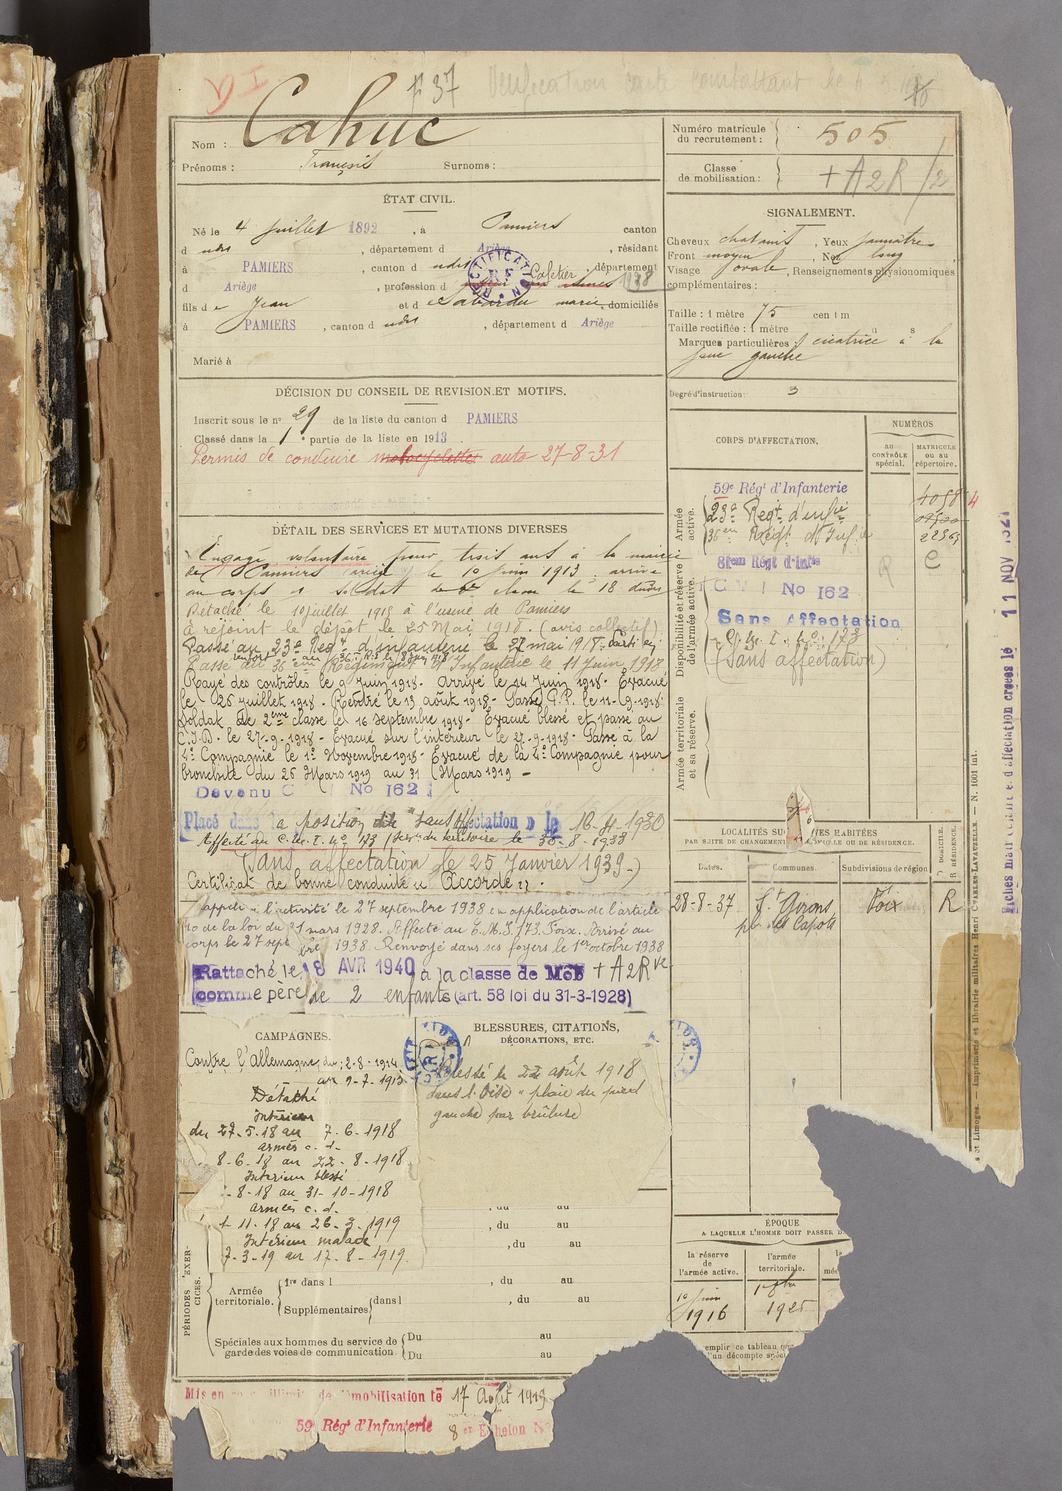 p 37 Vérification carte combattant le
Nom : Cahuc
Prénoms : François Surnoms :
Numéro matricule du recrutement : 505
Classe de mobilisation : + A 2 R / 2
ÉTAT CIVIL.
Né le 4 juillet 1892, à Pamiers canton
d udit, département d Ariège, résidant
à PAMIERS, canton d udit, département
d Ariège, profession d Cafetier 1138
fils de Jean et de Labarda marie, domiciliés
à PAMIERS, canton d udit, département d Ariège
Marié à
SIGNALEMENT.
Cheveux chatains, Yeux jaunâtres
Front moyen, Nez long
Visage ovale, Renseignements physionomiques
complémentaires :
Taille : 1 mètre 75 cent m
Taille rectifiée : 1 mètre
Marques particulières : cicatrice à la
joue gauche
Degré d'instruction : 3
DÉCISION DU CONSEIL DE REVISION ET MOTIFS.
Inscrit sous le n° 29 de la liste du canton d PAMIERS
Classé dans la 1e partie de la liste en 1913
Permis de conduire motocyclettes auto 27-8-31
CORPS D'AFFECTATION.
NUMÉROS
AU CONTRÔLE spécial.
MATRICULE OU AU répertoire.
Armée active.
59e Régt d'Infanterie
23e Regt d'infie
36eme Régt d'Inf.ie
Disponibilité et réserve de l'armée active.
81eme Régt d'Infie
C M I No 162
Sans Affectation
(Sans affectation)
R
C
Armée territoriale et sa réserve.
DÉTAIL DES SERVICES ET MUTATIONS DIVERSES
Engagé volontaire pour trois ans à la mairie
de Pamiers Ariège le 10 juin 1913, arrivé
au corps et soldat de 2e classe le 18 dudit
Détaché le 10 juillet 1915 à l'usine de Pamiers
a rejoint le dépôt le 25 Mai 1918. (avis collectif)
Passé au 23e Regt d'infanterie le 27 mai 1918. Parti en
Passé au 36eme Régiment d'Infanterie le 11 Juin 1918
Rayé des contrôles le 9 Juin 1918. Arrivé le 14 Juin 1918. Evacué
le 25 juillet 1918. Rentré le 13 août 1918. Passé G.R. le 11-9-1918.
Soldat de 2eme classe le 16 septembre 1918. Evacué blessé et passé au
C.I.D. le 27-9-1918. Evacué sur l'intérieur le 27-9-1918. Passé à la
4e Compagnie le 1er Novembre 1918. Evacué de la 4e Compagnie pour
bronchite du 26 Mars 1919 au 31 Mars 1919 -
Devenu C I No 162
Placé dans la position dite "sans affectation" le 16-4-1930
Affecté au C.M.I. No 173 (Serv. du territoire le 30-8-1938
(Sans affectation le 25 Janvier 1939-)
Certificat de bonne conduite "Accordé".
Rappelé à l'activité le 27 septembre 1938 en application de l'article
40 de la loi du 31 mars 1928. Affecté au C.M.I 173 Foix. Arrivé au
corps le 27 septembre 1938. Renvoyé dans ses foyers le 1er octobre 1938
Rattaché le 8 AVR 1940 à la classe de Mob + A2R
comme père de 2 enfants (art. 58 loi du 31-3-1928)
LOCALITÉS SUCCESSIVES HABITÉES
PAR SUITE DE CHANGEMENT DE DOMICILE OU DE RÉSIDENCE.
Dates. Communes. Subdivisions de région. D DOMICILE. R RÉSIDENCE.
28-8-37 St Girons Foix R
pl. des Capots
CAMPAGNES.
Contre l'Allemagne du 2-8-1914
au 9-7-1915
Détaché
Intérieur
du 27-5-18 au 7-6-1918
armées c.d.
8-6-18 au 22-8-1918
Intérieur blessé
-8-18 au 31-10-1918
armées c.d.
1-11-18 au 26-3-1919
Intérieur malade
7-3-19 au 17-8-1919
BLESSURES, CITATIONS,
DÉCORATIONS, ETC.
Blessé le 22 août 1918
dans l'Oise "plaie du pied
gauche par brûlure
, du au
, du au
PÉRIODES D'EXERCICES.
Armée territoriale.
1re dans l , du au
Supplémentaires dans l , du au
Spéciales aux hommes du service de garde des voies de communication
Du au
Du au
ÉPOQUE
A LAQUELLE L'HOMME DOIT PASSER D
la réserve de l'armée active. l'armée territoriale.
10 Juin 1916 1925
emplir ce tableau
d'un décompte spéci
Mis en congé illimité de démobilisation le 17 Août 1919
59 Régt d'Infanterie 8er Echelon No
11 NOV 1921
Imprimerie et librairie militaires Henri CHARLES-LAVAUZELLE. — N. 1001 int.